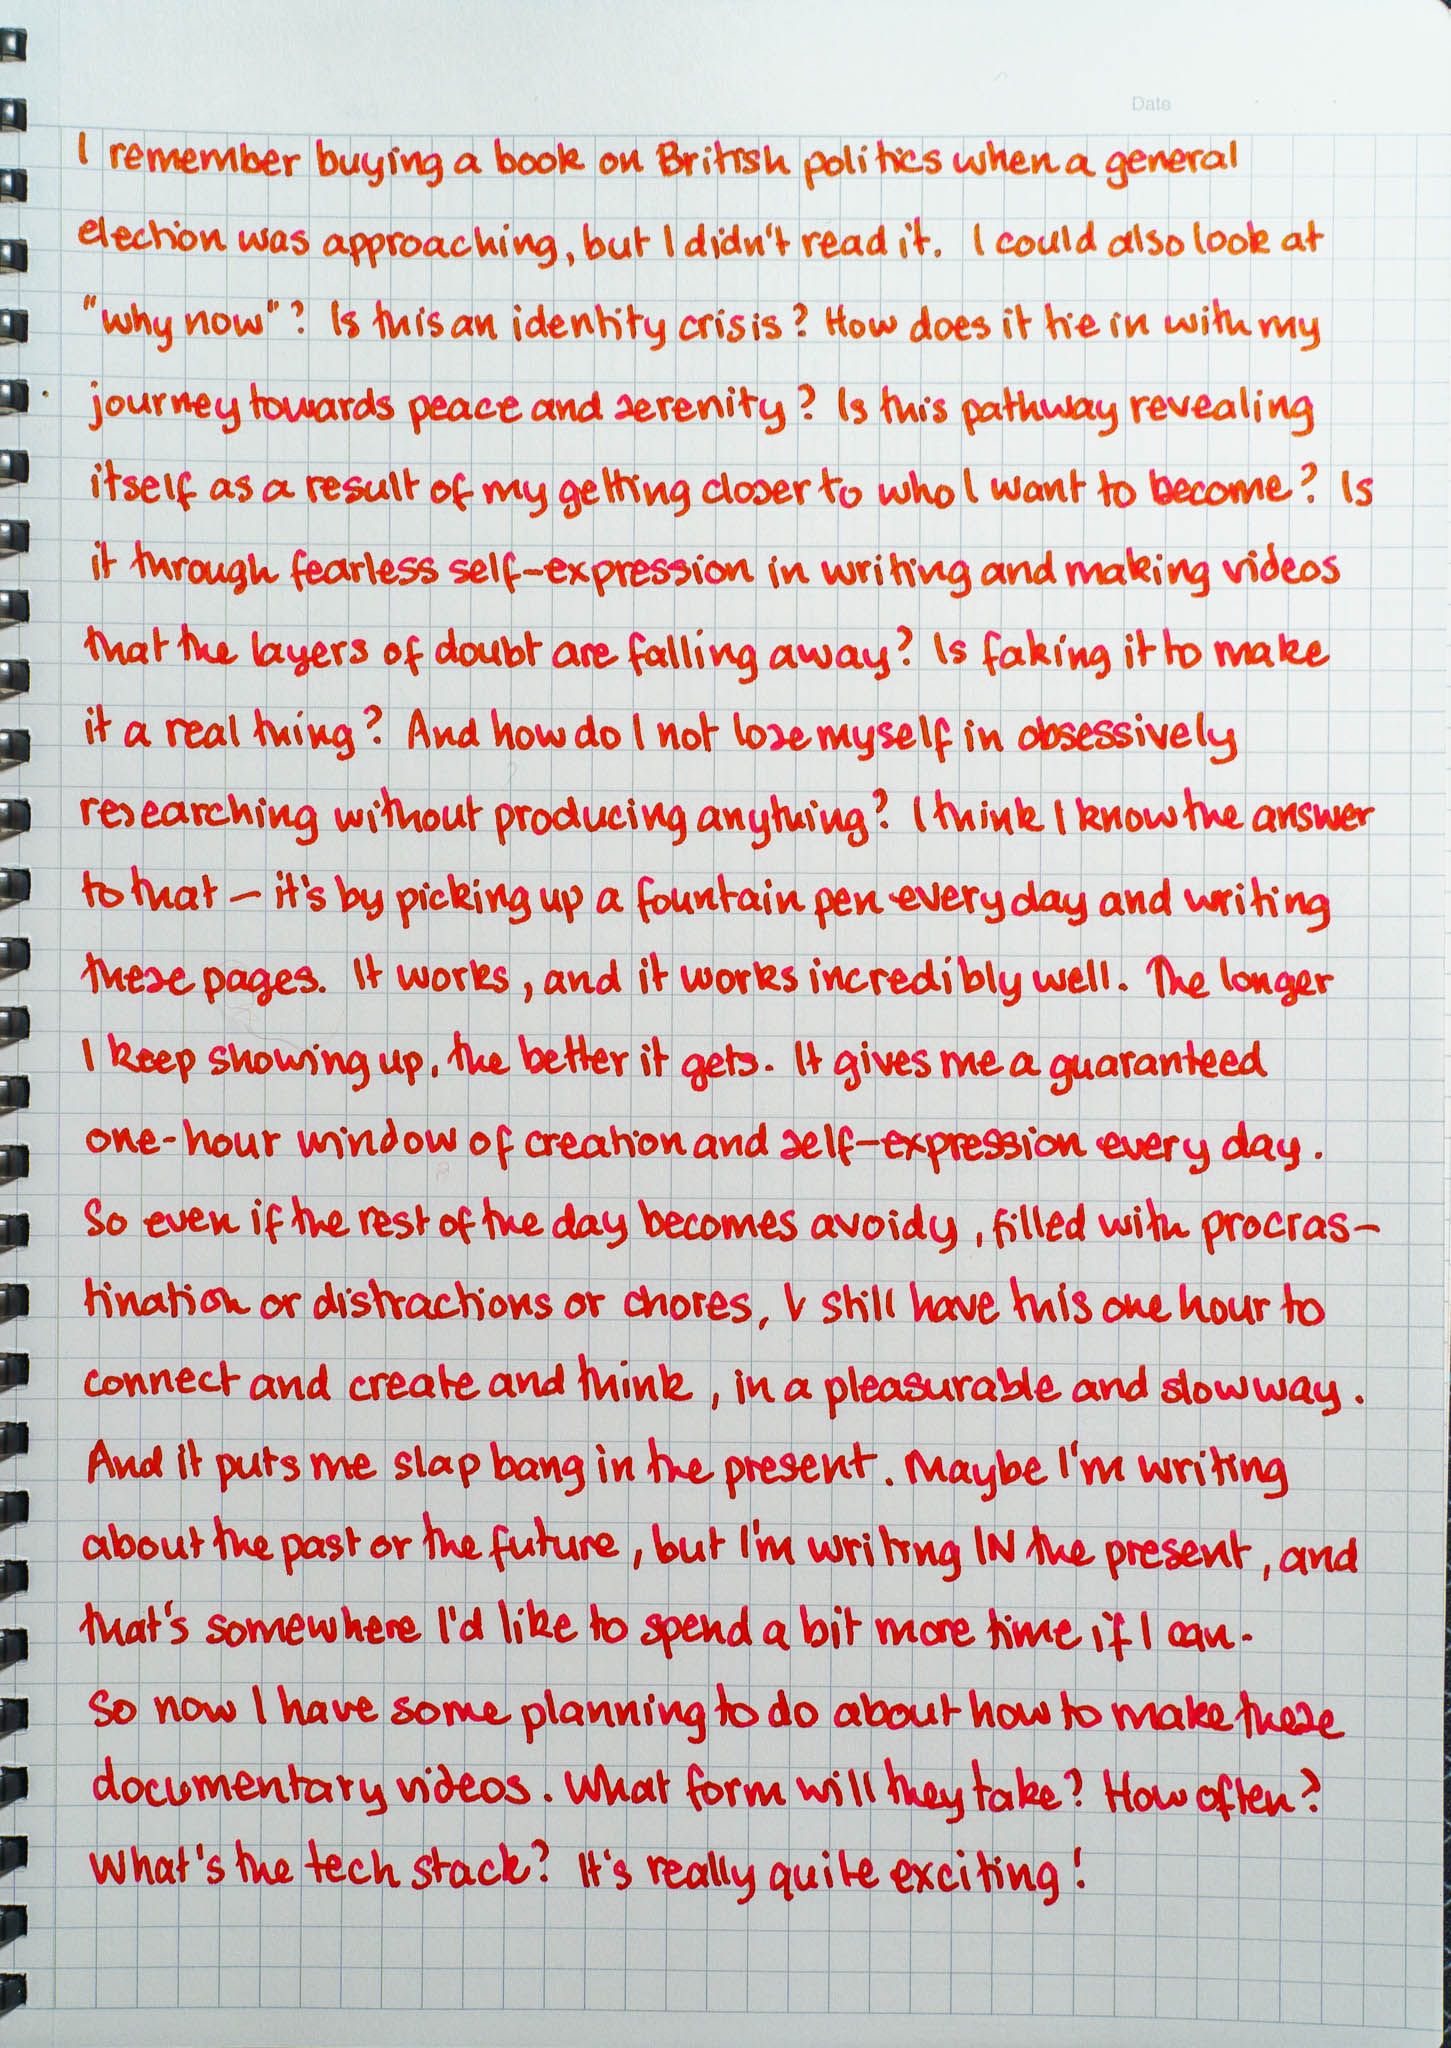 Date
I remember buying a book on British politics when a general
election was approaching, but I didn't read it. I could also look at
"why now"? Is this an identity crisis? How does it tie in with my
journey towards peace and serenity? Is this pathway revealing
itself as a result of my getting closer to who I want to become? Is
it through fearless self-expression in writing and making videos
that the layers of doubt are falling away? Is faking it to make
it a real thing? And how do I not lose myself in obsessively
researching without producing anything? I think I know the answer
to that – it's by picking up a fountain pen every day and writing
these pages. It works, and it works incredibly well. The longer
I keep showing up, the better it gets. It gives me a guaranteed
one-hour window of creation and self-expression every day.
So even if the rest of the day becomes avoidy, filled with procras-
tination or distractions or chores, I still have this one hour to
connect and create and think, in a pleasurable and slow way.
And it puts me slap bang in the present. Maybe I'm writing
about the past or the future, but I'm writing IN the present, and
that's somewhere I'd like to spend a bit more time if I can.
So now I have some planning to do about how to make these
documentary videos. What form will they take? How often?
What's the tech stack? It's really quite exciting!